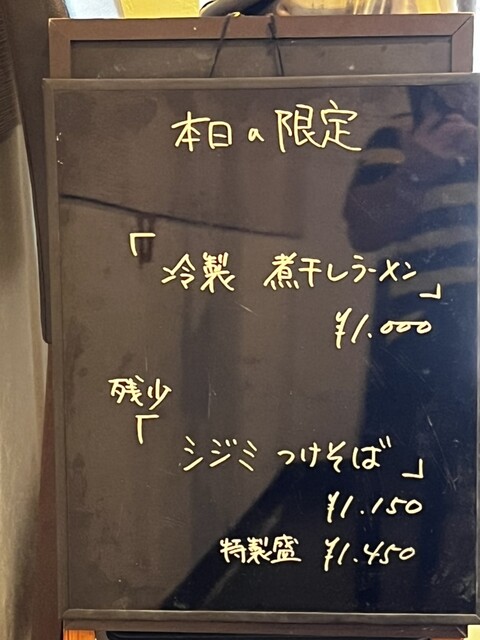 本日の限定
「冷製 煮干しラーメン」
¥1.000
残少
「シジミ つけそば」
¥1.150
特製盛 ¥1.450